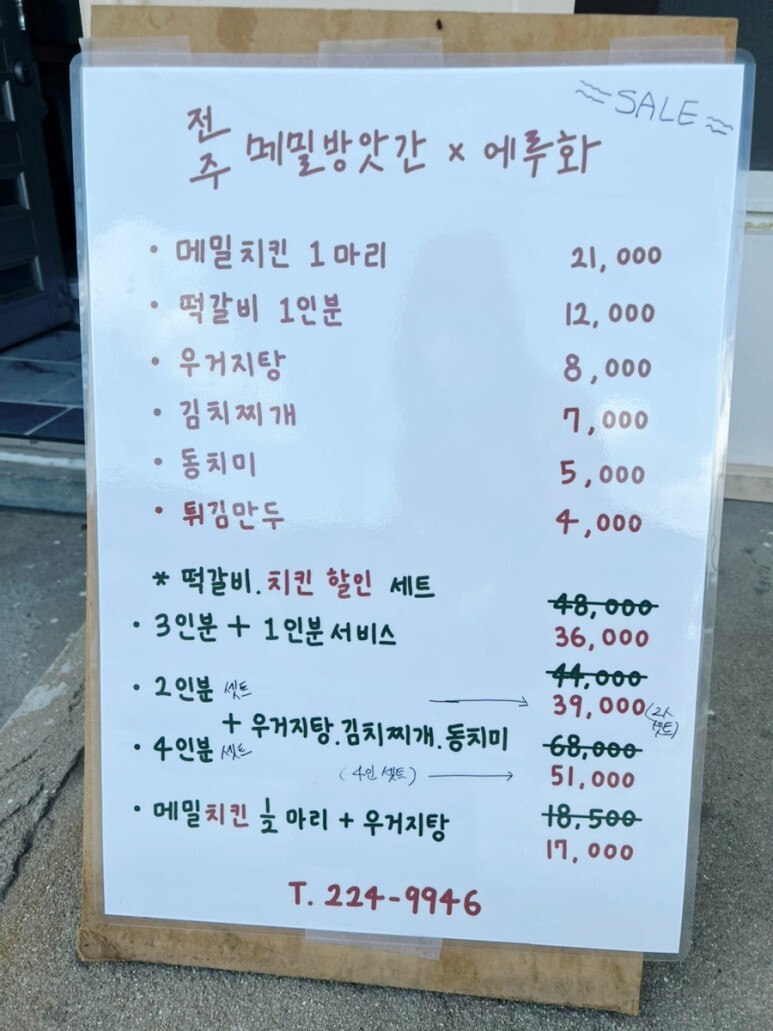 SALE
전주 메밀방앗간 x 에루화
· 메밀치킨 1마리 21,000
· 떡갈비 1인분 12,000
· 우거지탕 8,000
· 김치찌개 7,000
· 동치미 5,000
· 튀김만두 4,000
* 떡갈비.치킨 할인 세트
48,000
· 3인분 + 1인분 서비스 36,000
44,000
· 2인분 셋트 → 39,000 (2人 셋트)
+ 우거지탕.김치찌개.동치미
· 4인분 셋트 68,000
(4인 셋트) → 51,000
· 메밀치킨 ½ 마리 + 우거지탕 18,500
17,000
T. 224-9946